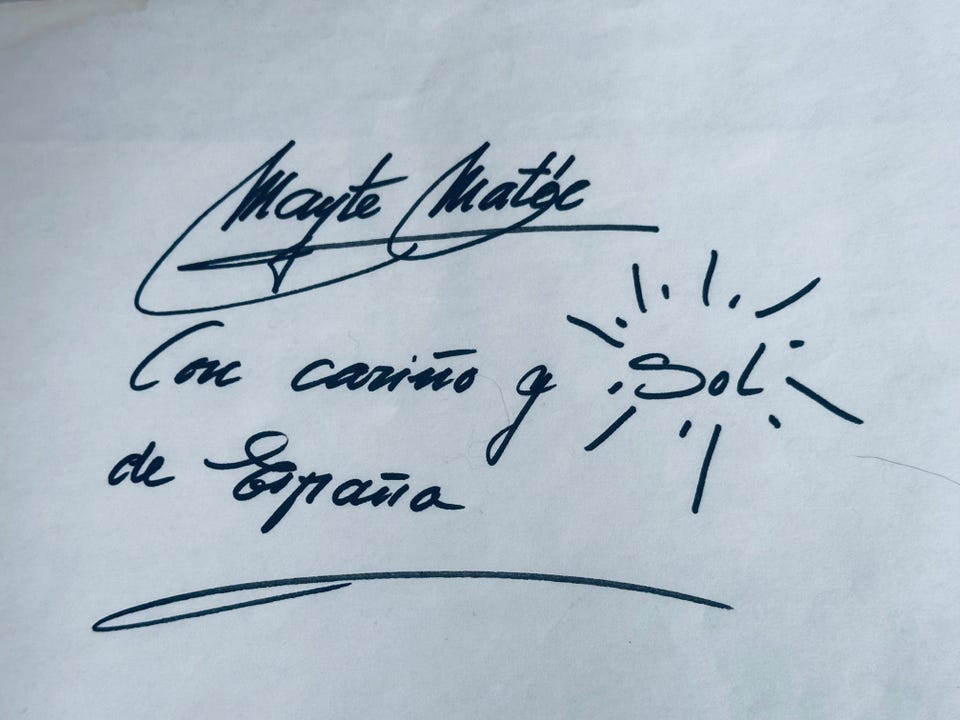 Mayte
Con cariño y Sol
de España